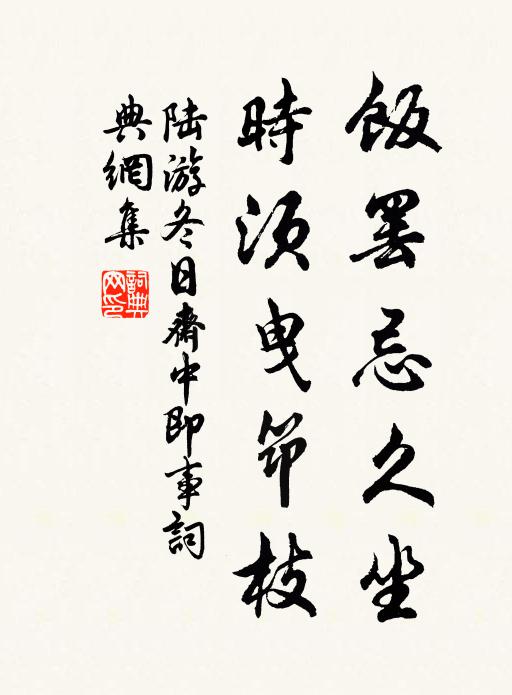 飯罷忌久坐
時須曳笻枝
陸游冬日齋中即事詞
典網集
詞典網印